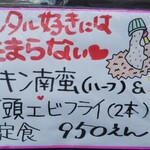 タル好きには
まらない♥
キン南蛮(ハーフ)&
頭エビフライ(2本)
定食 950えん